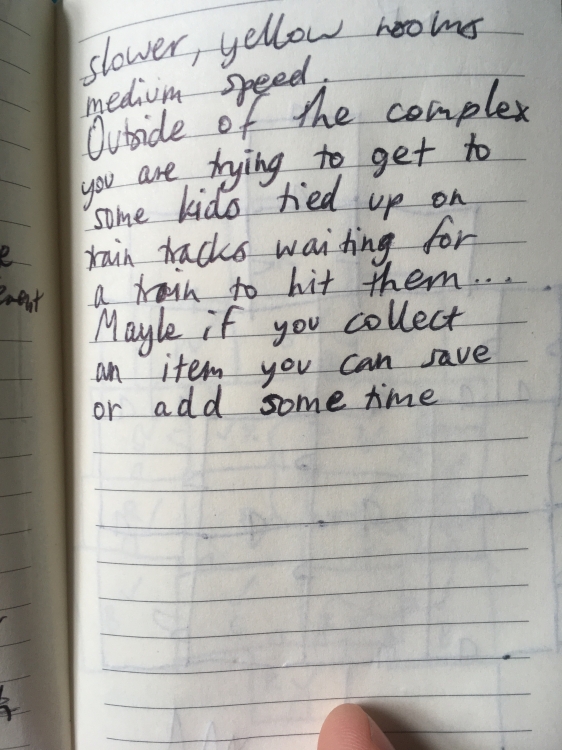 slower, yellow rooms
medium speed.
Outside of the complex
you are trying to get to
some kids tied up on
train tracks waiting for
a train to hit them...
Mayle if you collect
an item you can save
or add some time